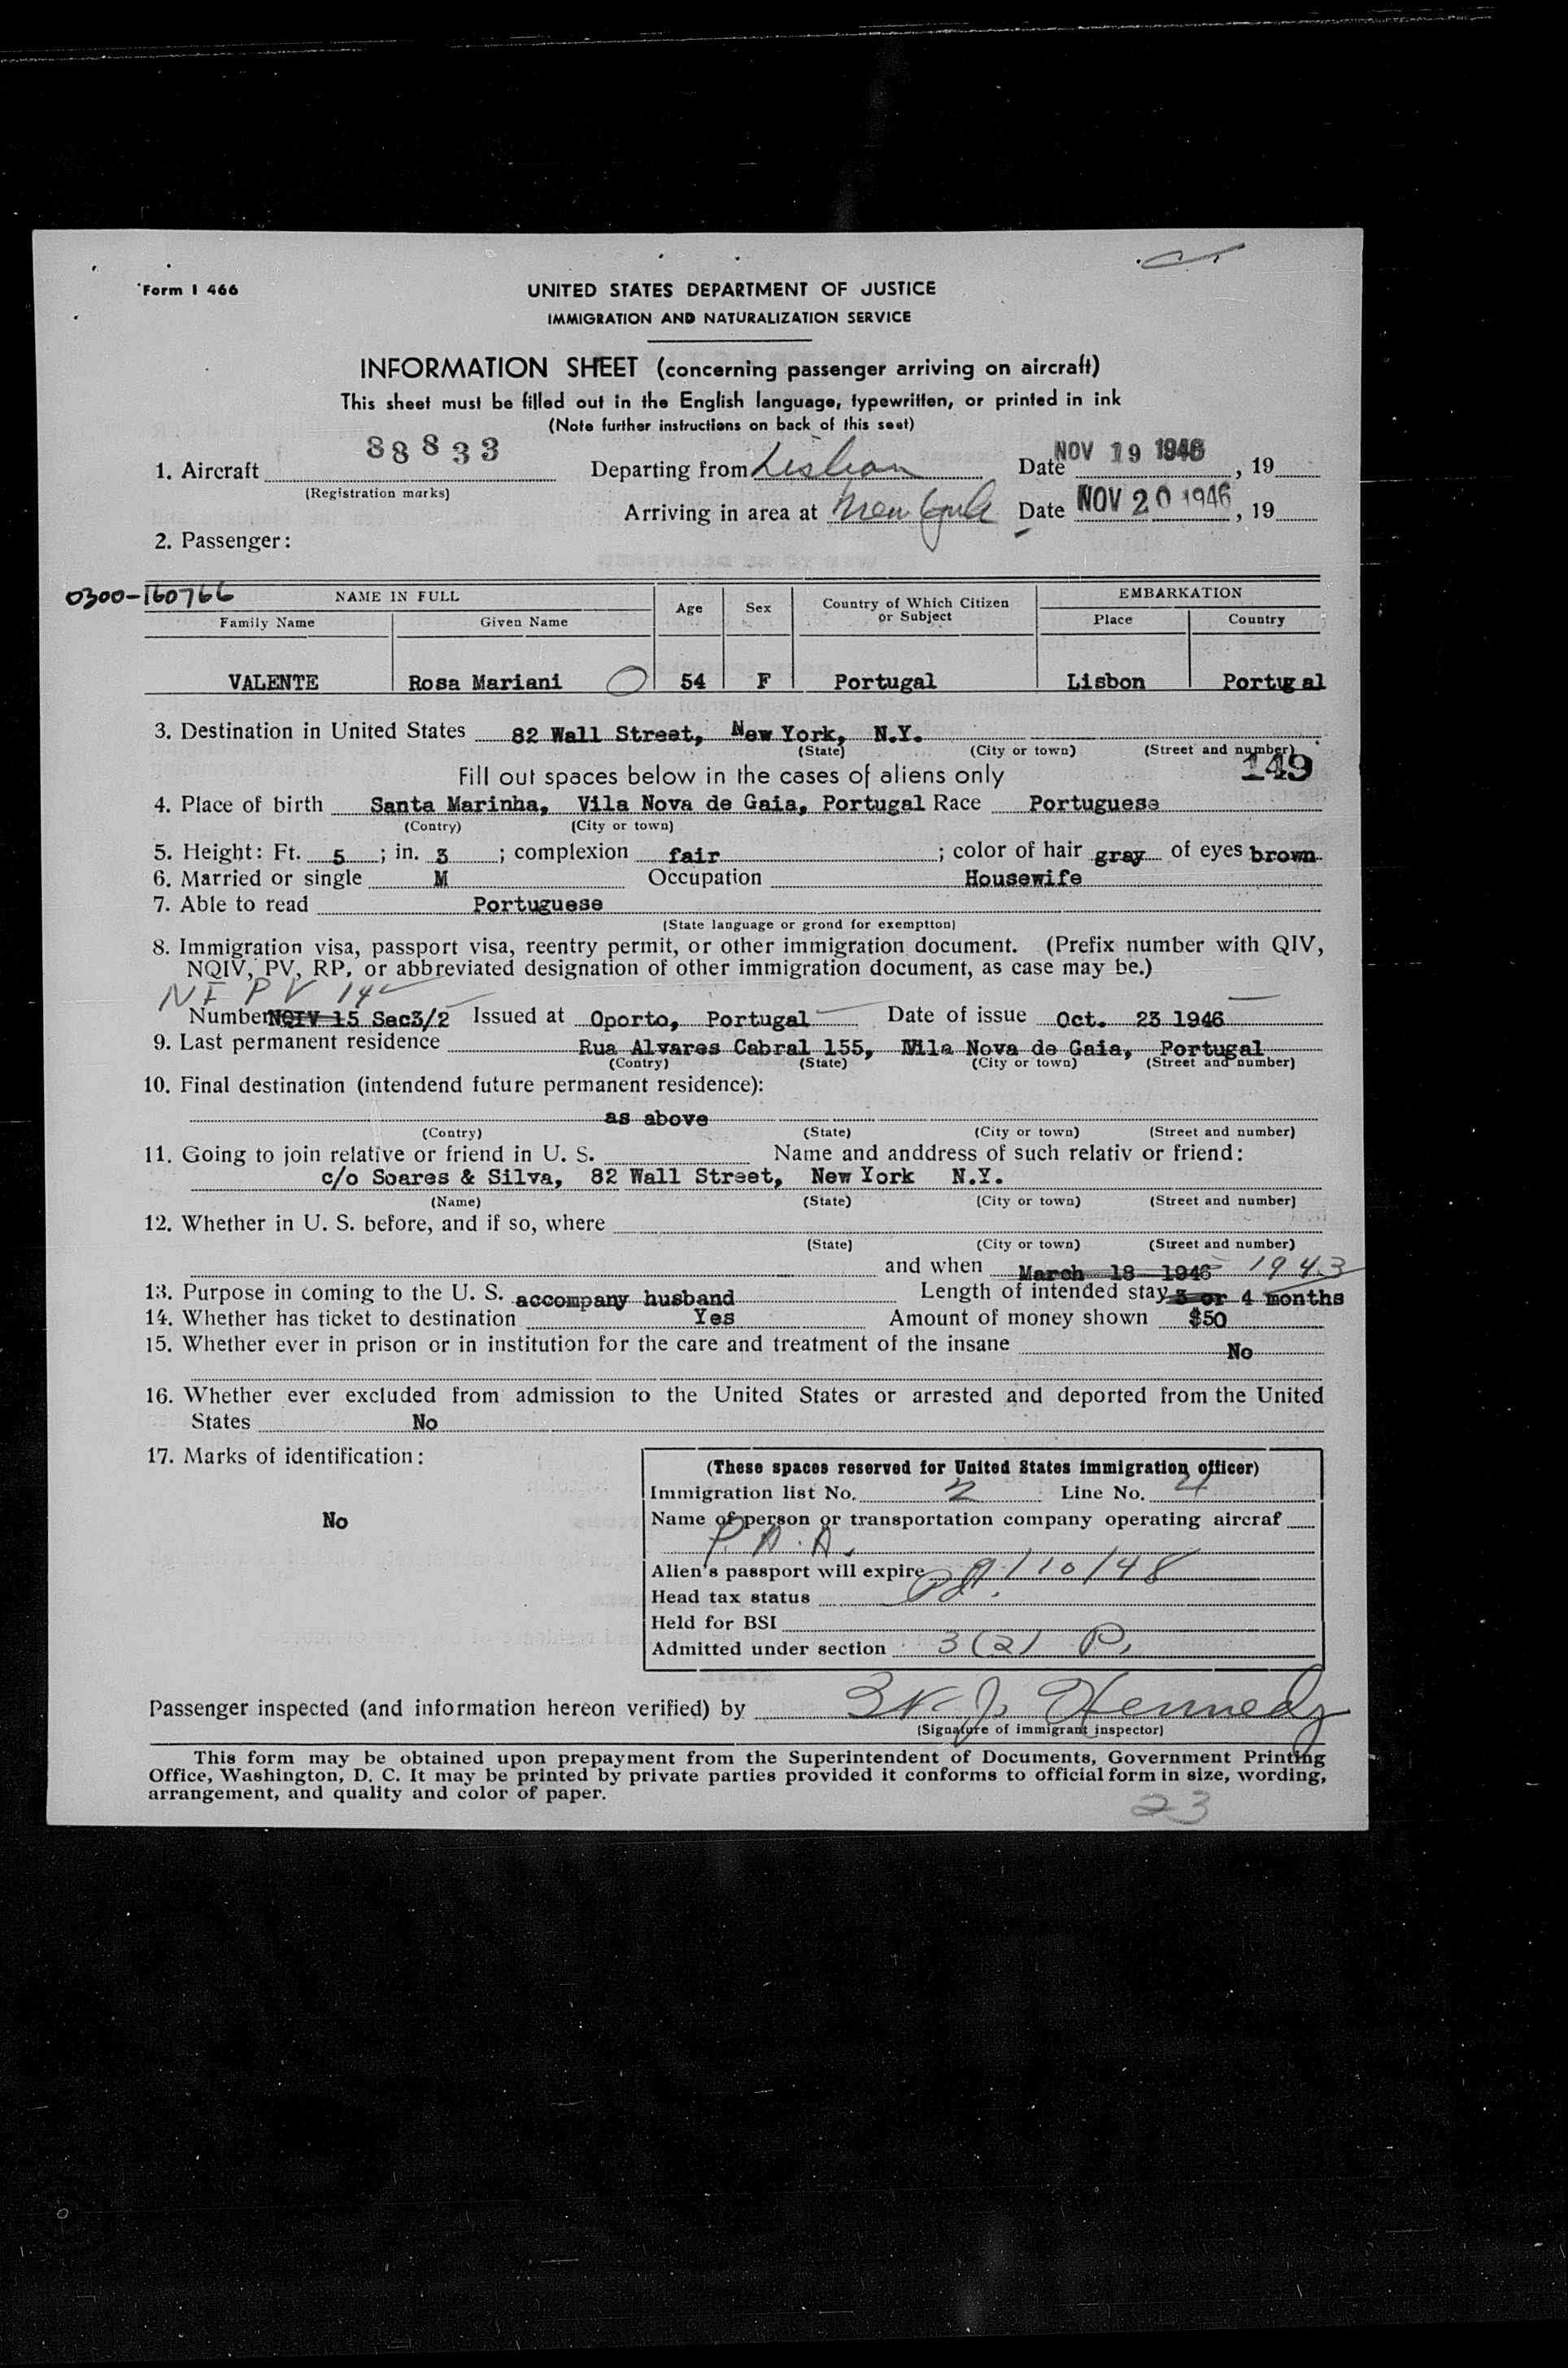 Form I 466
UNITED STATES DEPARTMENT OF JUSTICE
IMMIGRATION AND NATURALIZATION SERVICE
INFORMATION SHEET (concerning passenger arriving on aircraft)
This sheet must be filled out in the English language, typewritten, or printed in ink
(Note further instructions on back of this seet)
1. Aircraft 88833 Departing from Lisbon Date NOV 19 1946, 19
(Registration marks)
Arriving in area at New York Date NOV 20 1946, 19
2. Passenger:
0300-160766
NAME IN FULL Age Sex Country of Which Citizen or Subject EMBARKATION
Family Name Given Name Place Country
VALENTE Rosa Mariani 54 F Portugal Lisbon Portugal
3. Destination in United States 82 Wall Street, New York, N.Y.
(State) (City or town) (Street and number)
149
Fill out spaces below in the cases of aliens only
4. Place of birth Santa Marinha, Vila Nova de Gaia, Portugal Race Portuguese
(Contry) (City or town)
5. Height: Ft. 5; in. 3; complexion fair; color of hair gray of eyes brown
6. Married or single M Occupation Housewife
7. Able to read Portuguese
(State language or grond for exemptton)
8. Immigration visa, passport visa, reentry permit, or other immigration document. (Prefix number with QIV,
NQIV, PV, RP, or abbreviated designation of other immigration document, as case may be.)
NI PV 14
Number NQIV 15 Sec3/2 Issued at Oporto, Portugal Date of issue Oct. 23 1946
9. Last permanent residence Rua Alvares Cabral 155, Vila Nova de Gaia, Portugal
(Contry) (State) (City or town) (Street and number)
10. Final destination (intendend future permanent residence):
as above
(Contry) (State) (City or town) (Street and number)
11. Going to join relative or friend in U. S. Name and anddress of such relativ or friend:
c/o Soares & Silva, 82 Wall Street, New York N.Y.
(Name) (State) (City or town) (Street and number)
12. Whether in U. S. before, and if so, where
(State) (City or town) (Street and number)
and when March 18 1946 1943
13. Purpose in coming to the U. S. accompany husband Length of intended stay 3 or 4 months
14. Whether has ticket to destination Yes Amount of money shown $50
15. Whether ever in prison or in institution for the care and treatment of the insane No
16. Whether ever excluded from admission to the United States or arrested and deported from the United
States No
17. Marks of identification:
No
(These spaces reserved for United States immigration officer)
Immigration list No. 2 Line No. 4
Name of person or transportation company operating aircraf
P.A.A.
Alien's passport will expire 9/10/48
Head tax status Pd.
Held for BSI
Admitted under section 3(2) P.
Passenger inspected (and information hereon verified) by J. Kennedy
(Signature of immigrant inspector)
This form may be obtained upon prepayment from the Superintendent of Documents, Government Printing
Office, Washington, D. C. It may be printed by private parties provided it conforms to official form in size, wording,
arrangement, and quality and color of paper.
23